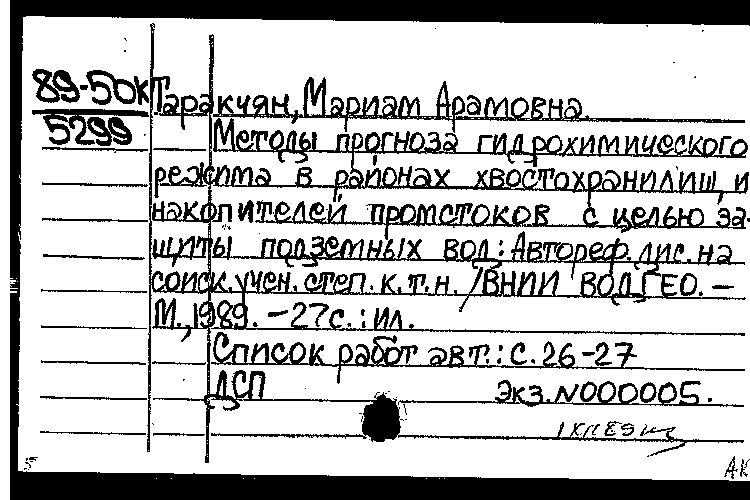 89-50к
5299
Таракчян, Мариам Арамовна.
Методы прогноза гидрохимического
режима в районах хвостохранилищ и
накопителей промстоков с целью за-
щиты подземных вод: Автореф. дис. на
соиск. учен. степ. к.т.н. /ВНИИ ВОДГЕО. –
М., 1989. – 27с.: ил.
Список работ авт.: с. 26-27
ДСП Экз. N000005.
5
АК